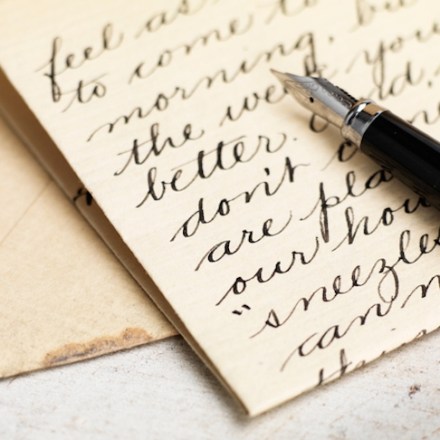 feel as
to come to
morning, bu
the week you
better. and,
don't
are pla
our hou
"sneezles
can n